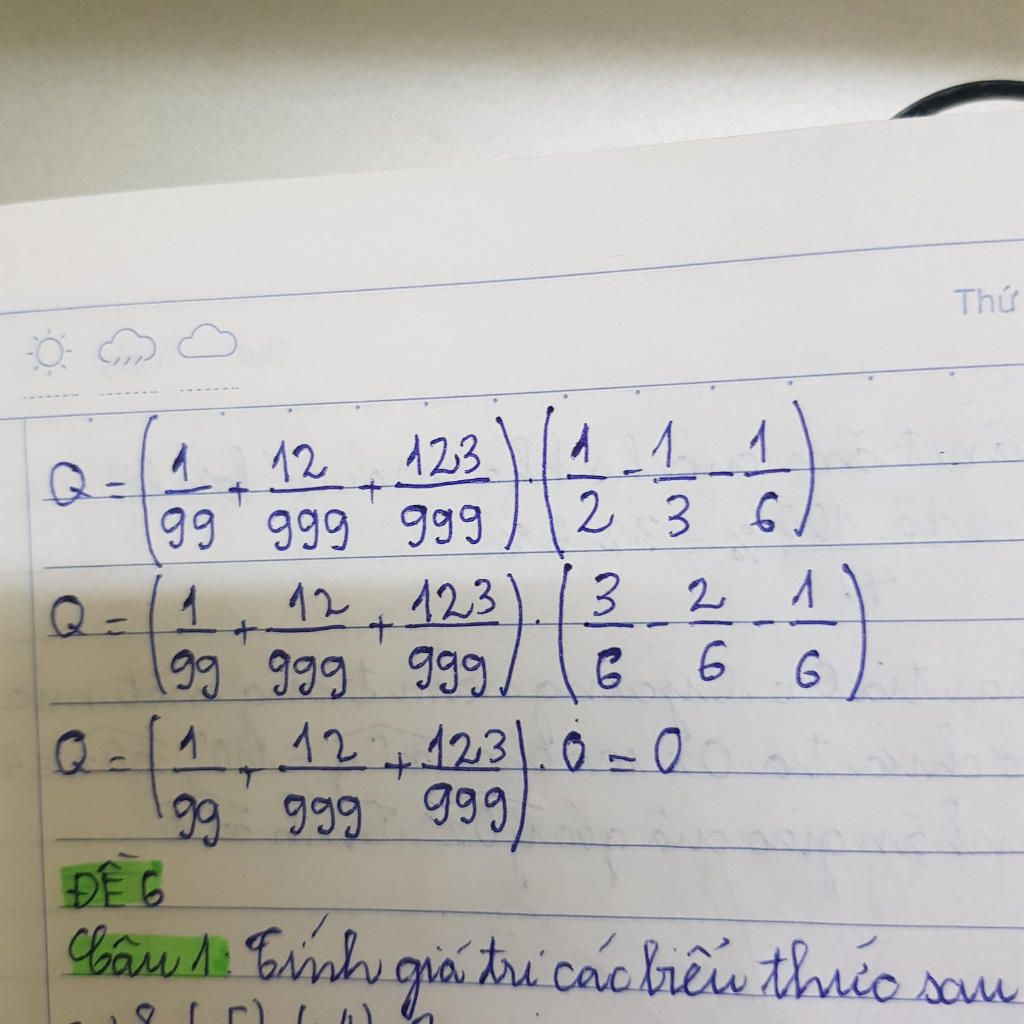 Thứ
Q = (1/99 + 12/999 + 123/999) . (1/2 - 1/3 - 1/6)
Q = (1/99 + 12/999 + 123/999) . (3/6 - 2/6 - 1/6)
Q = (1/99 + 12/999 + 123/999) . 0 = 0
ĐỀ 6
Câu 1: Tính giá trị các biểu thức sau